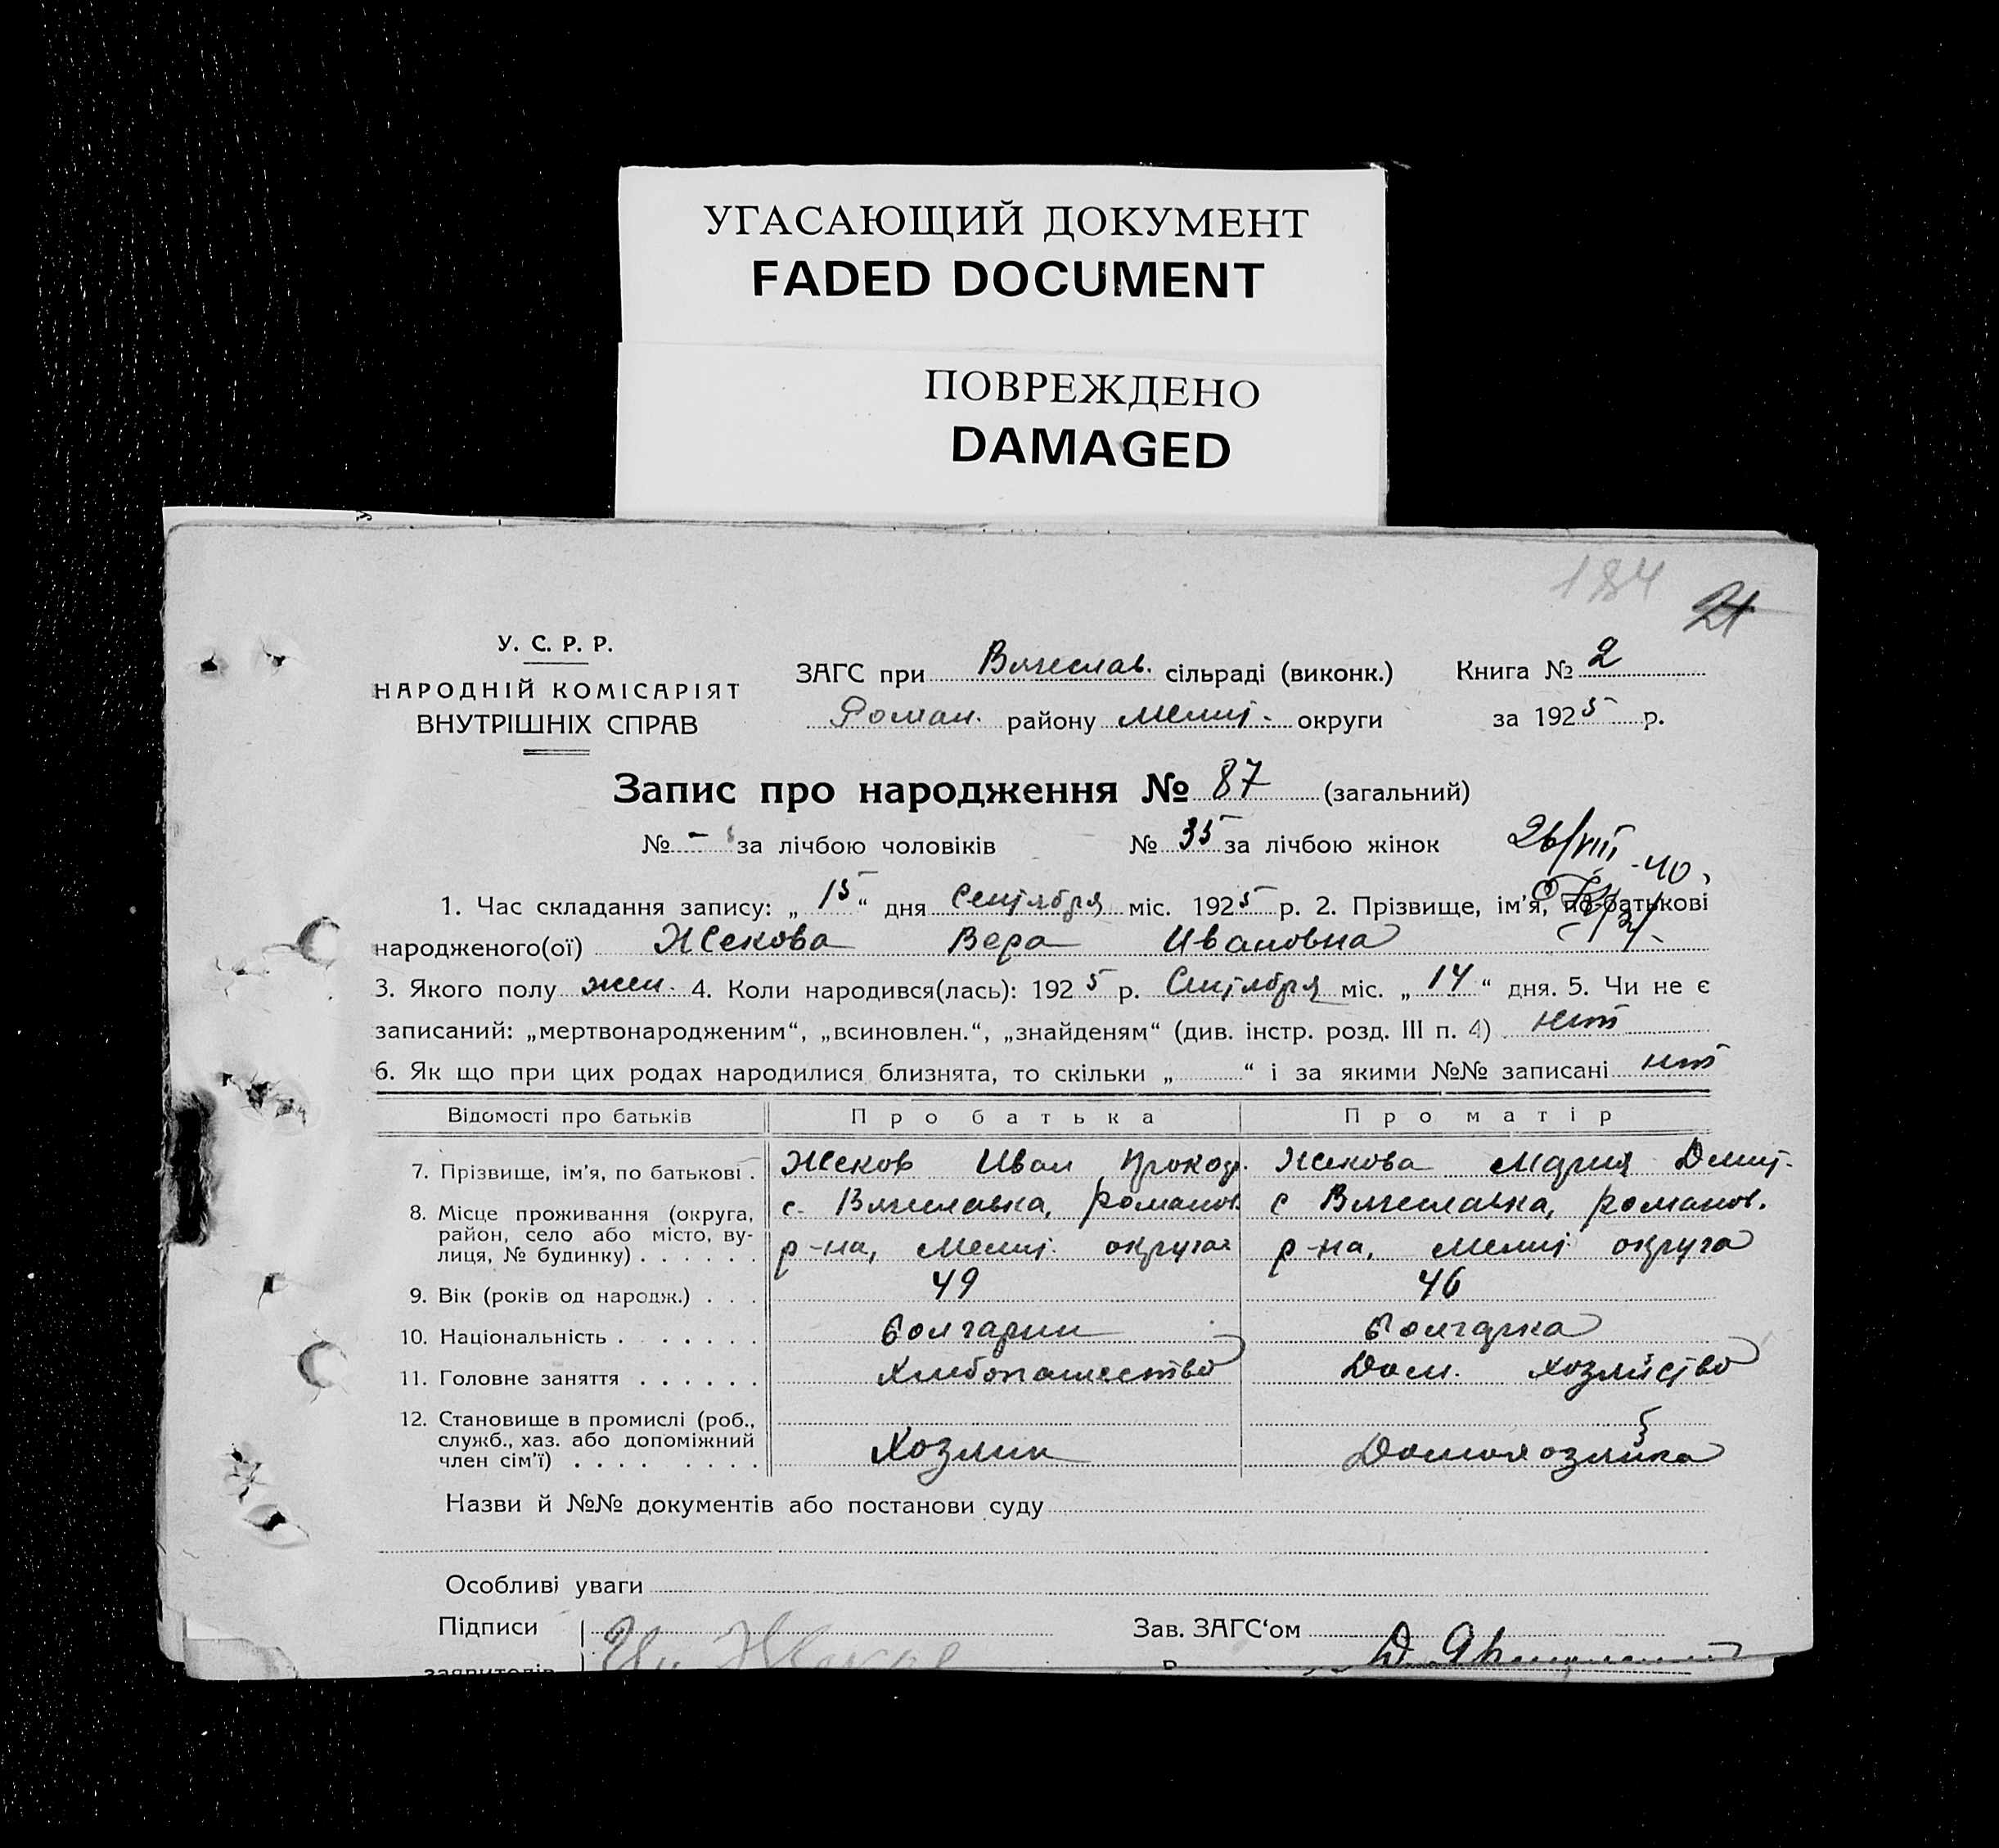 УГАСАЮЩИЙ ДОКУМЕНТ
FADED DOCUMENT
ПОВРЕЖДЕНО
DAMAGED
184
21
У. С. Р. Р.
НАРОДНІЙ КОМІСАРІЯТ
ВНУТРІШНІХ СПРАВ
ЗАГС при Вячеслав. сільраді (виконк.)
Роман. району Мелит. округи
Книга № 2
за 1925 р.
Запис про народження № 87 (загальний)
№ - за лічбою чоловіків № 35 за лічбою жінок
26/VIII-40
1. Час складання запису: „ 15 “ дня Сентября міс. 1925 р. 2. Прізвище, ім'я, по-батькові
народженого(ої) Жекова Вера Ивановна
3. Якого полу жен. 4. Коли народився(лась): 1925 р. Сентября міс. „ 14 “ дня. 5. Чи не є
записаний: „мертвонародженим“, „всиновлен.“, „знайденям“ (див. інстр. розд. III п. 4) нет
6. Як що при цих родах народилися близнята, то скільки „ “ і за якими №№ записані нет
Відомості про батьків Про батька Про матір
7. Прізвище, ім'я, по батькові . Жеков Иван Прокоф. Жекова Мария Дмит.
8. Місце проживання (округа, район, село або місто, вулиця, № будинку) с. Вячеславка, Романов. р-на, Мелит. округа с Вячеславка, Романов. р-на, Мелит. округа
9. Вік (років од народж.) . . . 49 46
10. Національність . . . . . . Болгарин Болгарка
11. Головне заняття . . . . . . Хлебопашество Дом. хозяйство
12. Становище в промислі (роб., служб., хаз. або допоміжний член сім'ї) . . . . Хозяин Домохозяйка
Назви й №№ документів або постанови суду
Особливі уваги
Підписи Ив. Жеков Зав. ЗАГС‘ом
заявителів